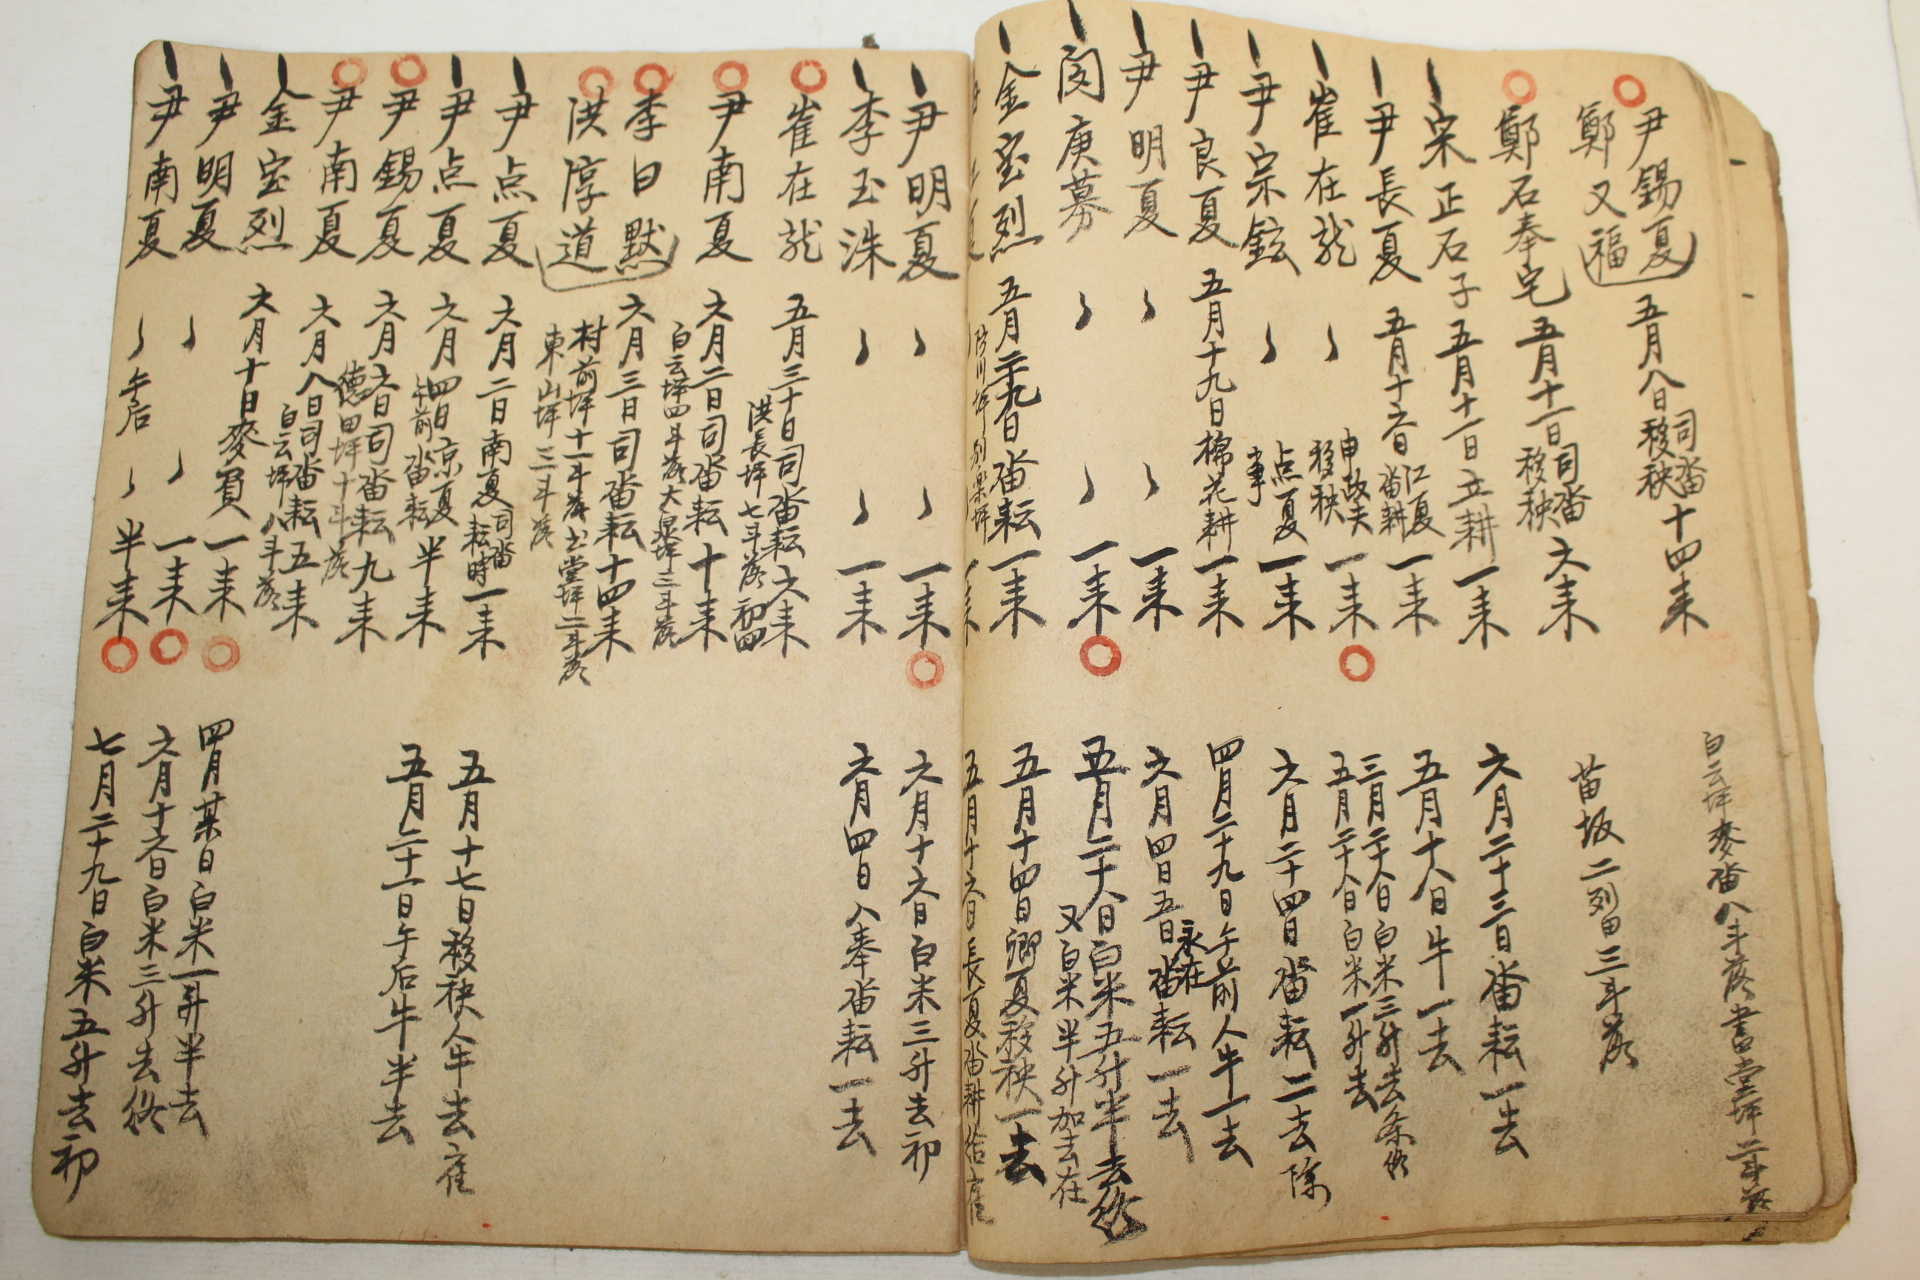 尹錫夏 五月八日司畓移秧十四来
鄭又福
白云坪麥畓八斗落書堂坪二斗落
苗坂二列田三斗落
鄭石奉宅 五月十一日司畓移秧六来
宋正石子 五月十一日立耕一来 六月二十三日畓耘一去
尹長夏 五月十六日江夏畓耕一来 五月十八日牛一去
崔在龍 申政夫移秧一来 三月二十八日白米三升去
五月二十八日白米一升去
尹宗鉉 点夏事一来 六月二十四日畓耘二去 除
尹良夏 五月十九日棉花耕一来 四月二十九日午前人牛一去
尹明夏 一来 六月四日五日永在畓耘一去
閔庚募 一来 五月二十八日白米五升半去終
又白米半升加去在
金宝烈 五月二十九日畓耘一来 五月十四日卿夏移秧一去
五月十六日長夏畓耕給雇
尹明夏 一来 六月十六日白米三升去初
李玉洙 一来 六月四日八奉畓耘一去
崔在龍 五月三十日司畓耘六来
洪長坪七斗落初四
尹南夏 六月二日司畓耘十来
白云坪四斗落大界坪三斗落
李日默 六月三日司畓耘十四来
洪淳道 村前坪十一斗落書堂坪二斗落
東山坪三斗落
尹点夏 六月二日南夏司畓耘時一来
尹点夏 六月四日京夏午前畓耘半来 五月十七日移秧人牛去雇
尹錫夏 六月六日司畓耘九来 五月二十一日午后牛半去
德田坪十斗落
尹南夏 六月八日司畓耘五来
白云坪八斗落
金宝烈 六月十日麥買一来
尹明夏 一来 四月某日白米一升半去
六月十六日白米三升去終
尹南夏 午后 半来 七月二十九日白米五升去初